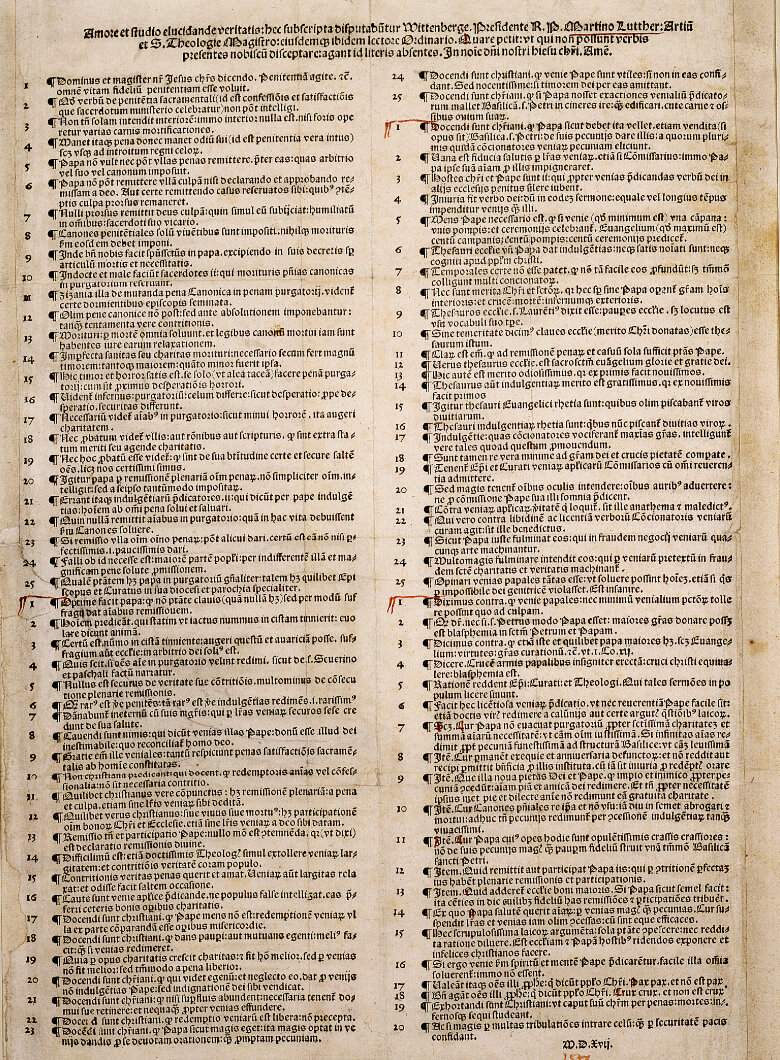 Amore et studio elucidande veritatis: hec subscripta disputabūtur Wittenberge. Presidente R. P. Martino Lutther: Artiū
et S. Theologie Magistro: eiusdemq; ibidem lectore Ordinario. Quare petit: vt qui non possunt verbis
presentes nobiscū disceptare: agant id literis absentes. In noīe dn̄i nostri hiesu chr̄i. Amē.
1 ¶ Dominus et magister nr̄ Jesus chr̄s dicendo. Penitentiā agite. ꝛc̄.
omnē vitam fideliū penitentiam esse voluit.
2 ¶ Qd̄ verbū de penitētia sacramentali (id est confessiōis et satisfactiōis
que sacerdotum ministerio celebratur) non pōt intelligi.
3 ¶ Non tn̄ solam intendit interiorē: immo interior nulla est. nisi foris ope
retur varias carnis mortificationes.
4 ¶ Manet itaq; pena donec manet odiū sui (id est penitentia vera intus)
scꝫ vsq; ad introitum regni celoꝝ.
5 ¶ Papa nō vult nec pōt vllas penas remittere. p̄ter eas: quas arbitrio
vel suo vel canonum imposuit.
6 ¶ Papa nō pōt remittere vllā culpā nisi declarando et approbando re-
missam a deo. Aut certe remittendo casus reseruatos sibi: quibꝰ ꝯtē-
ptis culpa prorsus remaneret.
7 ¶ Nulli prorsus remittit deus culpā: quin simul eū subijciat: humiliatū
in oībus: sacerdoti suo vicario.
8 ¶ Canones penitētiales solū viuētibus sunt impositi. nihilq; morituris
ꝑm eosdem debet imponi.
9 ¶ Inde bn̄ nobis facit spūssctūs in papa. excipiendo in suis decretis sp̄
articulū mortis et necessitatis.
10 ¶ Indocte et male faciūt sacerdotes ij: qui morituris pn̄ias canonicas
in purgatorium reseruant.
11 ¶ Zizania illa de mutanda pena Canonica in penam purgatorij. videnꝉ
certe dormientibus episcopis seminata.
12 ¶ Olim pene canonice nō post: sed ante absolutionem imponebantur:
tanq; tentamenta vere contritionis.
13 ¶ Morituri: ꝑ mortē omnia soluunt. et legibus canonū mortui iam sunt
habentes iure earum relaxationem.
14 ¶ Imꝑfecta sanitas seu charitas morituri: necessario secam fert magnū
timorem: tantoq; maiorem: quāto minor fuerit ipsa.
15 ¶ Hic timor et horror: satis est. se solo (vt alea taceā) facere penā purga-
torij: cum sit ꝓximus desperatiōis horrori.
16 ¶ Videnꝉ infernus: purgatoriū: celum differre: sicut desperatio: ꝓpe de-
speratio. securitas differunt.
17 ¶ Necessariū videꝉ aīabꝰ in purgatorio: sicut minui horrorē. ita augeri
charitatem.
18 ¶ Nec ꝓbatum videꝉ vllis: aut rōnibus aut scripturis. ꝙ sint extra sta-
tum meriti seu agende charitatis.
19 ¶ Nec hoc ꝓbatū esse videꝉ: ꝙ sint de sua btītudine certe et secure saltē
oēs. licꝫ nos certissimi simus.
20 ¶ Igitur papa ꝑ remissionē plenariā oīm penaꝝ. nō simpliciter oīm. in-
telligit: sed a seipso tantūmodo impositaꝝ.
21 ¶ Errant itaq; indulgētiarū p̄dicatores. ij: qui dicūt per pape indulgē
tias: hoīem ab oīm pena solui et saluari.
22 ¶ Quin nullā remittit aīabus in purgatorio: quā in hac vita debuissent
ꝑm Canones soluere.
23 ¶ Si remissio vlla oīm oīno penaꝝ: pōt alicui dari. certū est eā nō nisi ꝑ-
fectissimis. i. paucissimis dari.
24 ¶ Falli ob id necesse est: maiorē partē popl̄i: per indifferentē illā et ma-
gnificam pene solute ꝓmissionem.
25 ¶ Qualē ptātem hꝫ papa in purgatoriū gn̄aliter: talem hꝫ quilibet Epi
scopus et Curatus in sua diocesi et parochia specialiter.
1 ¶ Optime facit papa: ꝙ nō ptāte clauis (quā nullā hꝫ) sed per modū suf
fragij dat aīabus remissionem.
2 ¶ Hoīem predicāt. qui statim vt iactus nummus in cistam tinnierit: euo
lare dicunt animā.
3 ¶ Certū est. nūmo in cistā tinniente: augeri questū et auariciā posse. suf-
fragium aūt ecclīe: in arbitrio dei solꝰ est.
4 ¶ Quis scit. si oēs aīe in purgatorio velint redimi. sicut de. s. Seuerino
et paschali factū narratur.
5 ¶ Nullus est securus de veritate sue cōtritiōis. multominus de cōsecu
tione plenarie remissionis.
6 ¶ Q rarꝰ est ꝟe penitēs: tā rarꝰ est ꝟe indulgētias redimēs. i. rarissimꝰ
7 ¶ Dānabunꝉ ineternū cū suis mgr̄is: qui ꝑ lr̄as veniaꝝ securos sese cre
dunt de sua salute.
8 ¶ Cauendi sunt nimis: qui dicūt venias illas Pape: donū esse illud dei
inestimabile: quo reconciliaꝉ homo deo.
9 ¶ Gratie em̄ ille veniales: tantū respiciunt penas satisfactiōis sacramē-
talis ab homīe constitutas.
10 ¶ Non christiana predicant: qui docent. ꝙ redemptoris aīas vel cōfes-
sionalia: nō sit necessaria contritio.
11 ¶ Quilibet christianus vere cōpunctus: hꝫ remissionē plenariā: a pena
et culpa. etiam sine lr̄is veniaꝝ sibi debitā.
12 ¶ Quilibet verus christianus: siue viuus siue mortuꝰ: hꝫ participationē
oīm bonoꝝ Chr̄i et Ecclesie. etiā sine lr̄is veniaꝝ a deo sibi datam.
13 ¶ Remissio tn̄ et participatio Pape: nullo mō est ꝯtemnēda. qꝛ (vt dixi)
est declaratio remissionis diuine.
14 ¶ Difficilimū est: etiā doctissimis Theologꝰ simul extollere veniaꝝ lar-
gitatem: et contritiōis veritatē coram populo.
15 ¶ Contritionis veritas penas querit et amat. Veniaꝝ aūt largitas rela
xat: et odisse facit saltem occasione.
16 ¶ Caute sunt venie ap̄tice p̄dicande. ne populus false intelligat. eas p̄-
ferri ceteris bonis oꝑibus charitatis.
17 ¶ Docendi sunt christiani. ꝙ Pape mens nō est: redemptionē veniaꝝ vl
la ex parte cōparandā esse oꝑibus misericordie.
18 ¶ Docendi sunt christiani. ꝙ dans pauꝑi: aut mutuans egenti: meliꝰ fa-
cit: ꝙ si venias redimeret.
19 ¶ Quia ꝑ opus charitatis crescit charitas: et fit hō melior. sed ꝑ venias
nō fit melior: sed tm̄modo a pena liberior.
20 ¶ Docendi sunt chr̄iani. ꝙ qui videt egenū: et neglecto eo. dat ꝓ venijs
nō indulgētias Pape: sed indignationē dei sibi vendicat.
21 ¶ Docendi sunt chr̄iani. ꝙ nisi suꝑfluis abundent: necessaria tenenꝉ do-
mui sue retinere: et nequaꝙ ꝓpter venias effundere.
22 ¶ Docēdi sunt christiani. ꝙ redemptio veniarū est libera: nō precepta.
23 ¶ Docēdi sunt chr̄iani. ꝙ Papa sicut magis eget: ita magis optat in ve
nijs dandis ꝓ se deuotam orationem: ꝙ ꝓmptam pecuniam.
24 ¶ Docendi sunt christiani. ꝙ venie Pape sunt vtiles: si non in eas confi-
dant. Sed nocentissime: si timorem dei per eas amittant.
25 ¶ Docendi sunt chr̄iani. ꝙ si Papa nosset exactiones venialiū p̄dicato-
rum mallet Basilicā. s. Petri in cineres ire: ꝙ edificari. cute carne et os-
sibus ouium suaꝝ.
1 ¶ Docendi sunt chr̄iani. ꝙ Papa sicut debet ita vellet. etiam vendita (si
opus sit) Basilica. s. Petri: de suis pecunijs dare illis: a quorum pluri-
mis quidā cōcionatores veniaꝝ pecuniam eliciunt.
2 ¶ Vana est fiducia salutis ꝑ lr̄as veniaꝝ. etiā si Comissarius: immo Pa-
pa ipse suā aīam ꝓ illis impigneraret.
3 ¶ Hostes chr̄i et Pape sunt ij: qui ꝓpter venias p̄dicandas verbū dei in
alijs ecclesijs penitus silere iubent.
4 ¶ Iniuria fit verbo dei: dū in eodē sermone: equale vel longius tēpus
impenditur venijs ꝙ illi.
5 ¶ Mens Pape necessario est. ꝙ si venie (qꝺ minimum est) vna cāpana:
vnis pompis: et ceremonijs celebranꝉ. Euangelium (qꝺ maximū est)
centū campanis: centū pompis: centū ceremonijs prediceꝉ.
6 ¶ Thesauri ecclīe vn̄ Papa dat indulgētias: neq; satis noīati sunt: neq;
cogniti apud ppl̄m christi.
7 ¶ Temporales certe nō esse patet. ꝙ nō tā facile eos ꝓfundūt: sꝫ tm̄mō
colligunt multi concionatoꝝ.
8 ¶ Nec sunt merita Chr̄i et sctōꝝ. qꝛ hec sꝑ sine Papa oꝑanꝉ grām hoīs
interioris: et crucē: mortē: infernumq; exterioris.
9 ¶ Thesauros ecclīe. s. Laurētiꝰ dixit esse: pauꝑes ecclīe. sꝫ locutus est
vsu vocabuli suo tꝑe.
10 ¶ Sine temeritate dicimꝰ claues ecclīe (merito Chr̄i donatas) esse the-
saurum istum.
11 ¶ Claꝝ est em̄. ꝙ ad remissionē penaꝝ et casuū sola sufficit ptās Pape.
12 ¶ Verus thesaurus ecclīe. est sacrosctm̄ euāgelium glorie et gratie dei.
13 ¶ Hic autē est merito odiosissimus. qꝛ ex primis facit nouissimos.
14 ¶ Thesaurus aūt indulgentiaꝝ merito est gratissimus. qꝛ ex nouissimis
facit primos
15 ¶ Igitur thesauri Euangelici rhetia sunt: quibus olim piscabanꝉ viros
diuitiarum.
16 ¶ Thesauri indulgentiaꝝ rhetia sunt: qbus nūc piscanꝉ diuitias viroꝝ.
17 ¶ Indulgētie: quas cōcionatores vociferanꝉ maxīas grās. intelligunꝉ
vere tales quoad questum ꝓmouendum.
18 ¶ Sunt tamen re vera minime ad grām dei et crucis pietatē compate.
19 ¶ Tenenꝉ Ep̄i et Curati veniaꝝ aplicarū Cōmissarios cū oī reueren-
tia admittere.
20 ¶ Sed magis tenenꝉ oībus oculis intendere: oībus auribꝰ aduertere:
ne ꝓ cōmissione Pape sua illi somnia p̄dicent.
21 ¶ Cōtra veniaꝝ aplicaꝝ ꝟitatē q loquiꝉ. sit ille anathema et maledictꝰ.
22 ¶ Qui vero contra libidinē ac licentiā verborū Cōcionatoris veniarū
curam agit: sit ille benedictus.
23 ¶ Sicut Papa iuste fulminat eos: qui in fraudem negocij veniarū qua-
cunq; arte machinantur.
24 ¶ Multomagis fulminare intendit eos: qui ꝑ veniarū pretextū in frau-
dem sctē charitatis et veritatis machinanꝉ.
25 ¶ Opinari venias papales tātas esse: vt soluere possint hoīeꝫ. etiā si qꝯ
ꝑ impossibile dei genitricē violasset. Est insanire.
1 ¶ Diximus contra. ꝙ venie papales: nec minimū venialium pctōꝝ tolle
re possint quo ad culpam.
2 ¶ Qꝺ dr̄. nec si. s. Petrus modo Papa esset: maiores grās donare possꝫ
est blasphemia in sctm̄ Petrum et Papam.
3 ¶ Dicimus contra. ꝙ etiā iste et quilibet papa maiores hꝫ. scꝫ Euange-
lium: virtutes: grās curationū. ꝛc̄. vt. i. Co. xij.
4 ¶ Dicere. Crucē armis papalibus insigniter erectā: cruci christi equiua-
lere: blasphemia est.
5 ¶ Rationē reddent Ep̄i: Curati: et Theologi. Qui tales sermōes in po
pulum licere sinunt.
6 ¶ Facit hec licētiosa veniaꝝ p̄dicatio. vt nec reuerentiā Pape facile sit:
etiā doctis viris redimere a calūnijs aut certe argutꝰ qstiōibꝰ laicoꝝ.
7 ¶ Scꝫ. Cur Papa nō euacuat purgatoriū ꝓpter sctissimā charitatē et
summā aīarū necessitatē: vt cām oīm iustissimā. Si infinitas aīas re-
dimit ꝓpt pecuniā funestissimā ad structurā Basilice: vt cāꝫ leuissimā
8 ¶ Itē. Cur ꝑmanēt exequie et anniuersaria defunctoꝝ: et nō reddit aut
recipi ꝑmittit bn̄ficia ꝓ illis instituta. cū iā sit iniuria ꝓ redēptꝰ orare
9 ¶ Itē. Que illa noua pietas Dei et Pape. ꝙ impio et inimico ꝓpter pe-
cuniā ꝯcedūt: aīam piā et amicā dei redimere. Et tn̄ ꝓpter necessitatē
ipsius met pie et dilecte aīe nō redimunt eā gratuita charitate.
10 ¶ Itē. Cur Canones pn̄iales re ip̄a et nō vsu: iā diu in semet abrogati et
mortui: adhuc tn̄ pecunijs redimunꝉ per ꝯcessionē indulgētiaꝝ tanꝙ
viuacissimi.
11 ¶ Itē. Cur Papa cuiꝰ opes hodie sunt opulētissimis crassis crassiores:
nō de suis pecunijs magꝭ ꝙ pauꝑm fideliū struit vnā tm̄mō Basilicā
sancti Petri.
12 ¶ Item. Quid remittit aut participat Papa ijs: qui ꝑ ꝯtritionē ꝑfectaꝫ
ius habēt plenarie remissionis et participationis.
13 ¶ Item. Quid adderet ecclīe boni maioris. Si Papa sicut semel facit:
ita cēties in die cuilibꝫ fideliū has remissiōes et ꝑticipationes tribuet.
14 ¶ Ex quo Papa salutē querit aīaꝝ: ꝑ venias magꝭ ꝙ pecunias. Cur su-
spendit lr̄as et venias iam olim ꝯcessas: cū sint eque efficaces.
15 ¶ Hec scrupulosissima laicoꝝ argumēta: sola ptāte ꝯpescere: nec reddi-
ta ratione diluere. Est ecclīam et Papā hostibꝰ ridendos exponere et
infelices christianos facere.
16 ¶ Si ergo venie ꝑm spiritū et mentē Pape p̄dicarētur. facile illa omnia
soluerenꝉ: immo nō essent.
17 ¶ Valeāt itaq; oēs illi ꝓphe: q dicūt ppl̄o Chr̄i. Pax pax. et nō est pax
18 ¶ Bn̄ agāt oēs illi ꝓphe: q dicūt ppl̄o Chr̄i. Crux crux. et non est crux
19 ¶ Exhortandi sunt Christiani: vt caput suū chr̄m per penas: mortes: in-
fernosq; sequi studeant.
20 ¶ Ac si magis ꝑ multas tribulatiōes intrare celū: ꝙ ꝑ securitatē pacis
confidant.
M.D.Xvij.